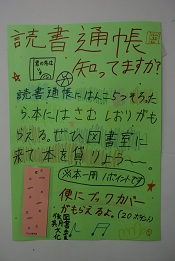 読書通帳
知ってますか?
読書通帳にはんこ5つそろった
ら、本にはさむしおりがも
らえる。ぜひ図書室に
来て本を借りよう〜
※本一冊1ポイントです
更にブックカバー
がもらえるよ。(20ポイント)
図書委員